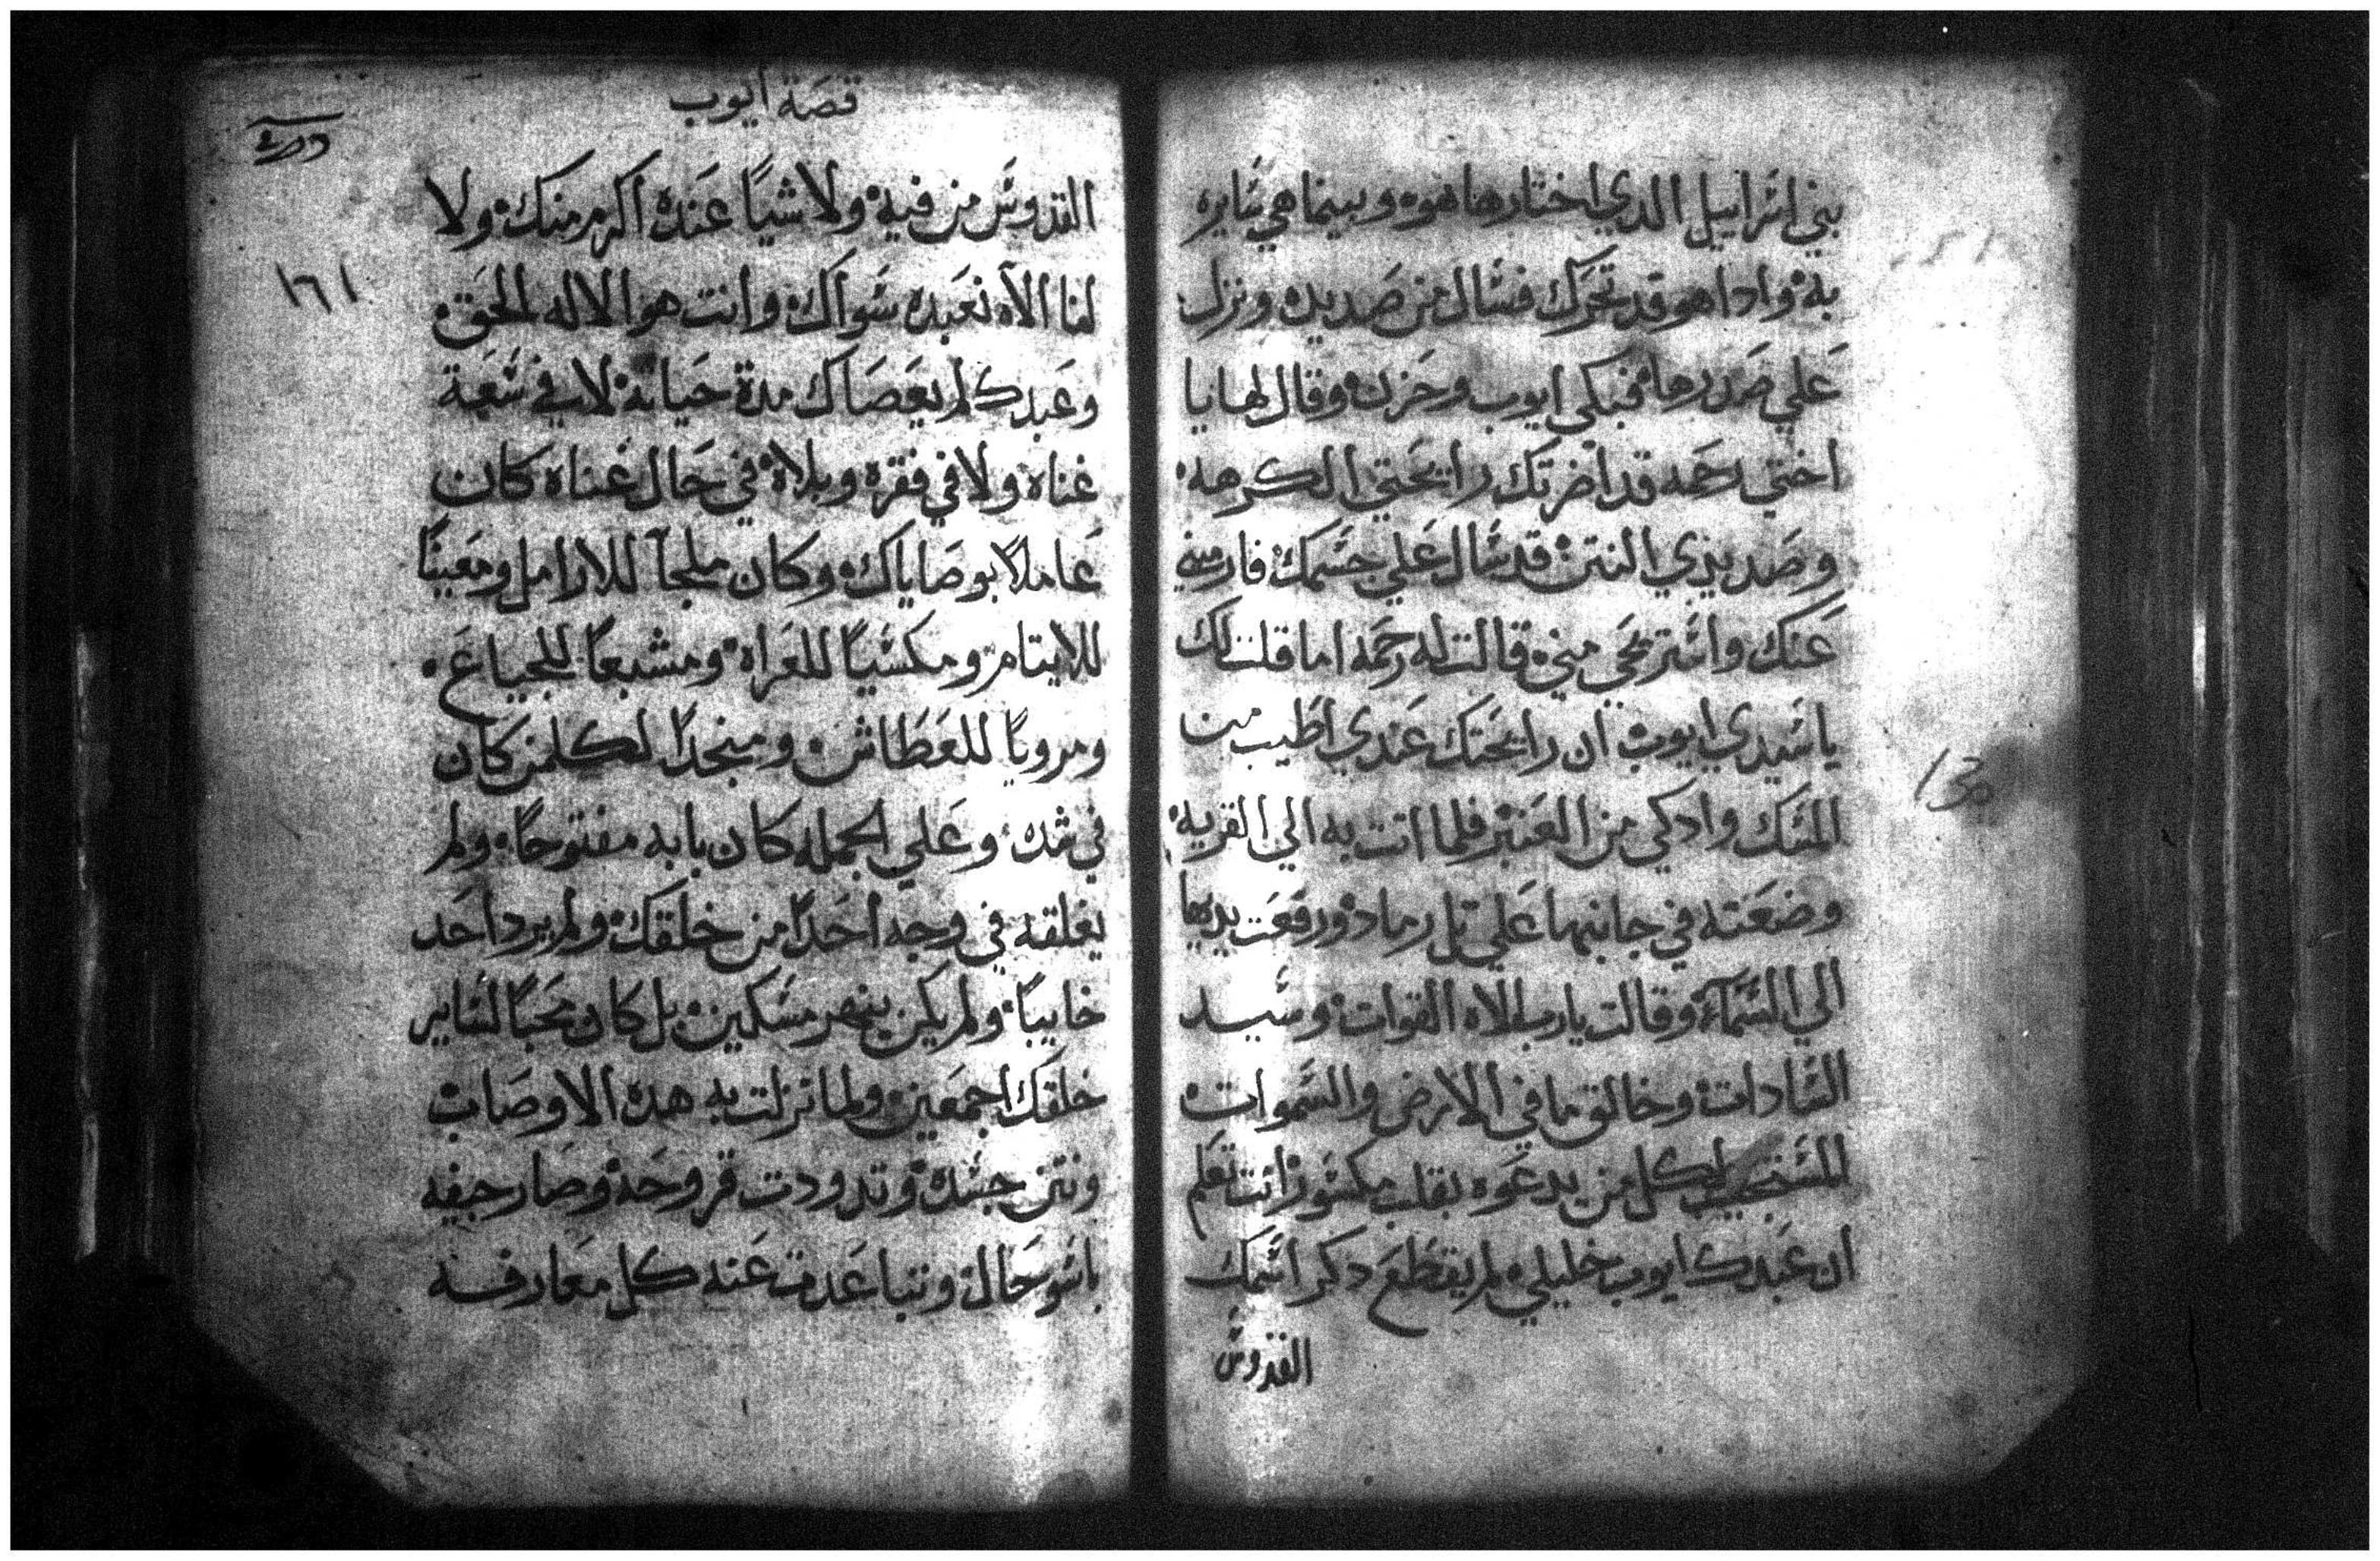 بني اسراييل الدي اختارها هوه وبينما هي سايره
به وادا هو قد تحرك فسال من صديده ونزل
علي صدرها فبكي ايوب وحزن وقال لها يا
اختي رحمه قد اضرتك رايحتي الكرهه
وصديدي النتن قد سال علي جسمك فارميني
عنك واستريحي مني قالت له رحمه اما قلت لك
يا سيدي ايوب ان رايحتك عندي اطيب من
المسك وادكي من العنبر فلما اتت به الي القريه
وضعته في جانبها علي تل رماد ورفعت يديها
الي السماء وقالت يا رب الاه القوات وسيد
السادات وخالق ما في الارض والسموات
المستجيب لكل من يدعوه بقلب مكسور انت تعلم
ان عبدك ايوب خليلي لم يقطع دكر اسمك
القدوس
قصة ايوب
القدوس من فيه ولا شياً عنده اكرم منك ولا
لنا الاه نعبده سواك وانت هو الاله الحق
وعبدك لم يعصاك مدة حياته لا في سعة
غناه ولا في فقره وبلاه في حال غناه كان
عاملاً بوصاياك وكان ملجاً للارامل ومعيناً
للايتام ومكسياً للعراه ومشبعاً للجياع
ومروياً للعطاش ومنجداً لكلمن كان
في شده وعلي الجمله كان بابه مفتوحاً ولم
يغلقه في وجه احداً من خلقك ولم يرد احد
خايباً ولم يكن ينهر مسكين بل كان محباً لساير
خلقك اجمعين ولما نزلت به هده الاوصاب
ونتن جسده وتدودت قروحه وصار جيفه
باسو حال وتباعدت عنه كل معارفه
١٦١